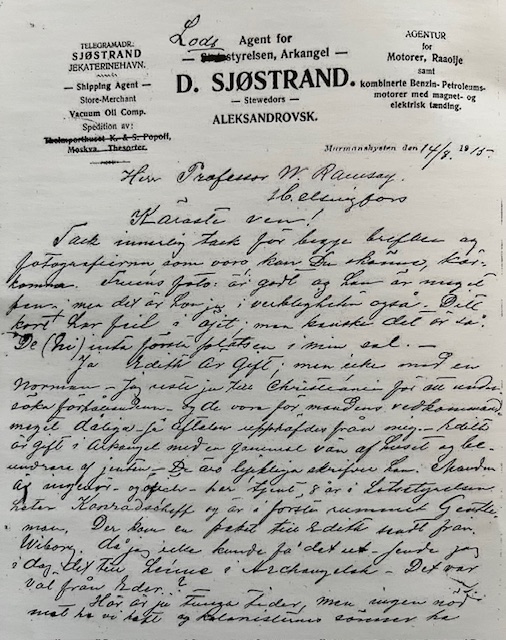 TELEGRAMADR.
SJØSTRAND
JEKATERINEHAVN.
— Shipping Agent —
Store-Merchant
Vacuum Oil Comp.
Spedition av:
Theimporthuset K. & S. Popoff,
Moskva. Thesorter.
Lods
Agent for
styrelsen, Arkangel —
D. SJØSTRAND.
— Stewedors —
ALEKSANDROVSK.
AGENTUR
for
Motorer, Raaolje
samt
kombinerte Benzin- Petroleums-
motorer med magnet- og
elektrisk tænding.
Murmankysten den 14/8. 1915.
Herr Professor W. Ramsay.
Helsingfors
Käraste ven!
Tack innerlig tack för begge brefven og
fotografierna som voro
foto: är godt og han är meget
pen; men det är hon jo i också. Ditt
kort har feil i øjet, man kanske det är så.
De (Ni) första platsen i min sal. —
Ja Edith är Gift; men icke med en
Norman — Jag reste ju till Christiania för att under-
söka förhållanden — og de vore för mandens vedkommande
meget daliga — så upphäfdes från meg. — Edith
är gift i Arkangel med en gammal vän af huset og be-
undrare af — De äro lyckliga skrifver hon.
är og — har tjent 8 år i Lotsstyrelsen
heter og är i första rummet Gentle-
man. Der kom en paket till Edith sendt från
Wiborg, då jeg icke kunde få det ut — sende jeg
i dag det till i Archangelsk — Det var
väl från Eder?
Här är ju tunga tider, men ingen nöd
mat ha vi haft og kolonisternes sönner ha